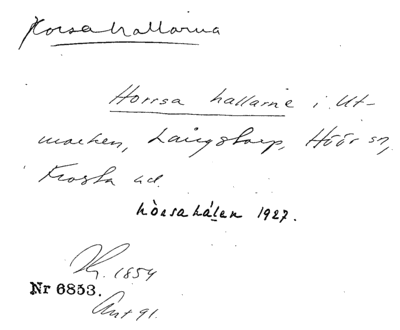 Horsahallarna
Horrsa hallarne i Ut-
marken, Långstorp, Höör sn,
Frosta hd.
hòrsahálen 1927.
1854
Nr 6853.
Ant 91.